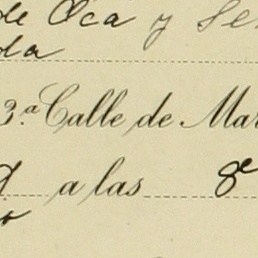 de Oca y Se
da
3.ª Calle de Mar
a las 8e